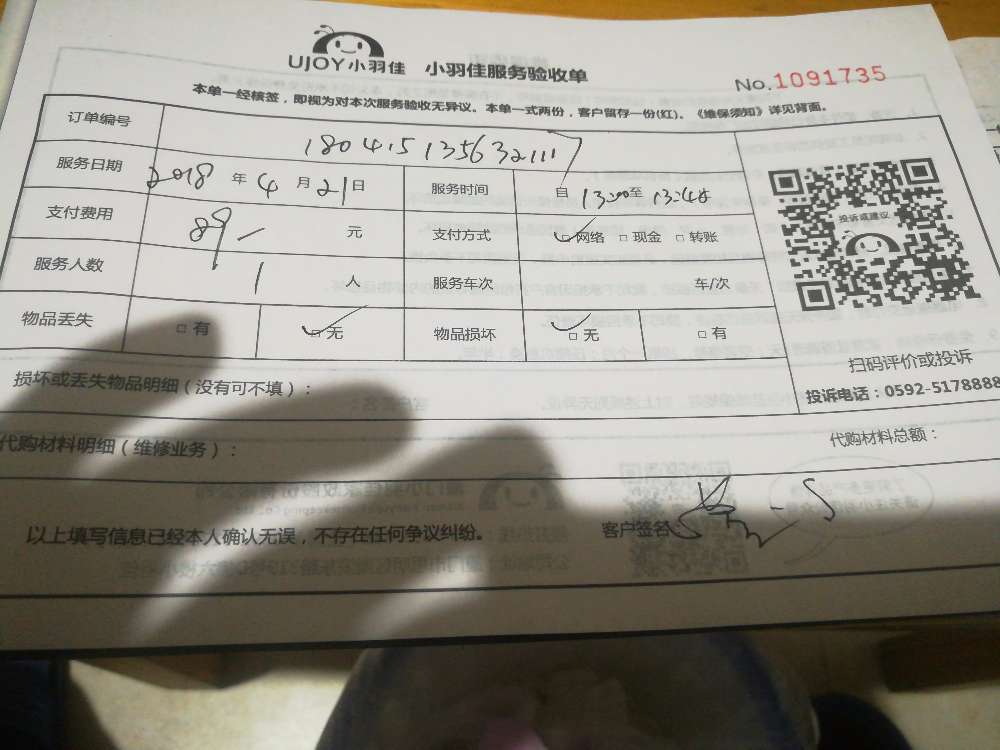 UJOY小羽佳 小羽佳服务验收单
No.1091735
本单一经核签，即视为对本次服务验收无异议。本单一式两份，客户留存一份(红)。《维保须知》详见背面。
订单编号
服务日期 2018 年 4 月 21 日 服务时间 自 13:00 至 13:48
支付费用 89 — 元 支付方式 □网络 □现金 □转账
服务人数 1 人 服务车次 车/次
物品丢失 □有 □无 物品损坏 □无 □有
投诉或建议
扫码评价或投诉
投诉电话：0592-5178888
损坏或丢失物品明细（没有可不填）：
代购材料明细（维修业务）： 代购材料总额：
以上填写信息已经本人确认无误，不存在任何争议纠纷。 客户签名